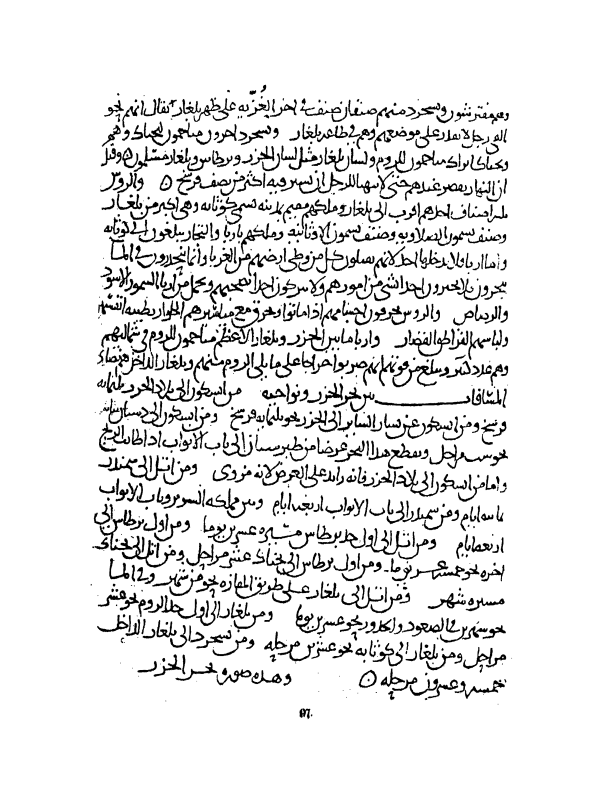 وهم مفترشون وبسجرد منهم صنفان صنف في اخر الغزية على ظهر بلغار يقال انهم نحو
الفي رجل لا يقدر على موضعهم وهم في طاعة بلغار وبسجرد اخرون متاخمون لبجناك وهم
وبجناك اتراك متاخمون للروم ولسان بلغار مثل لسان الخزر وبرطاس وبلغار مسلمون وقيل
ان النهار يقصر عندهم حتى لا يتهيا للرجل ان يسير فيه اكثر من نصف فرسخ والروس
ثلثة اصناف احدهم اقرب الى بلغار وملكهم مقيم بمدينة تسمى كوثابه وهي اكبر من بلغار
وصنف يسمون الصلاويه وصنف يسمون الارثانيه وملكهم باربا والتجار يبلغون الى كوثابه
واما اربا فلا يدخلها احد لانهم يقتلون كل من وطئ ارضهم من الغربا وانما ينحدرون في الما
يتجرون لا يخبرون احدا بشي من امورهم ولا يتركون احدا يصحبهم ويحمل من اربا السمور الاسود
والرصاص والروس يحرقون اجسامهم اذا ماتوا ويحرق مع مياسيرهم الجواري بطيبة انفسهن
ولباسهم القراطق القصار واربا ما بين الخزر وبلغار الاعظم متاخمون للروم في شماليهم
وهم عدد كثير ويبلغ من قوتهم انهم ضربوا خراجا على ما يلي الروم منهم وبلغار الداخل هم نصارى
المسافات بين بحر الخزر ونواحيه من ابسكون الى بلاد الخزر ثلثمايه
فرسخ ومن ابسكون عن يسار الساير الى الخزر نحو ثلثمايه فرسخ ومن ابسكون الى دهستان
نحو ست مراحل ويقطع هذا البحر عرضا من طبرستان الى باب الابواب اذا طابت الريح
واما من ابسكون الى بلاد الخزر فانه زايد على العرض لانه مزوى ومن اتل الى سمندر
ثمانيه ايام ومن سمندر الى باب الابواب اربعه ايام وبين مملكه السرير وباب الابواب
ومن اتل الى اول حد برطاس مسيره عشرين يوما ومن اول برطاس الى
اخره نحو خمسه عشر يوما ومن اول برطاس الى بجناك عشر مراحل ومن اتل الى بجناك
مسيره شهر ومن اتل الى بلغار على طريق المفازه نحو من شهر وفي الما
نحو شهرين في الصعود والحدور نحو عشرين يوما ومن بلغار الى اول حد الروم نحو عشر
مراحل ومن بلغار الى كوثابه نحو عشرين مرحله ومن بسجرد الى بلغار الداخل
خمسه وعشرون مرحله وهذه صوره بحر الخزر
97.